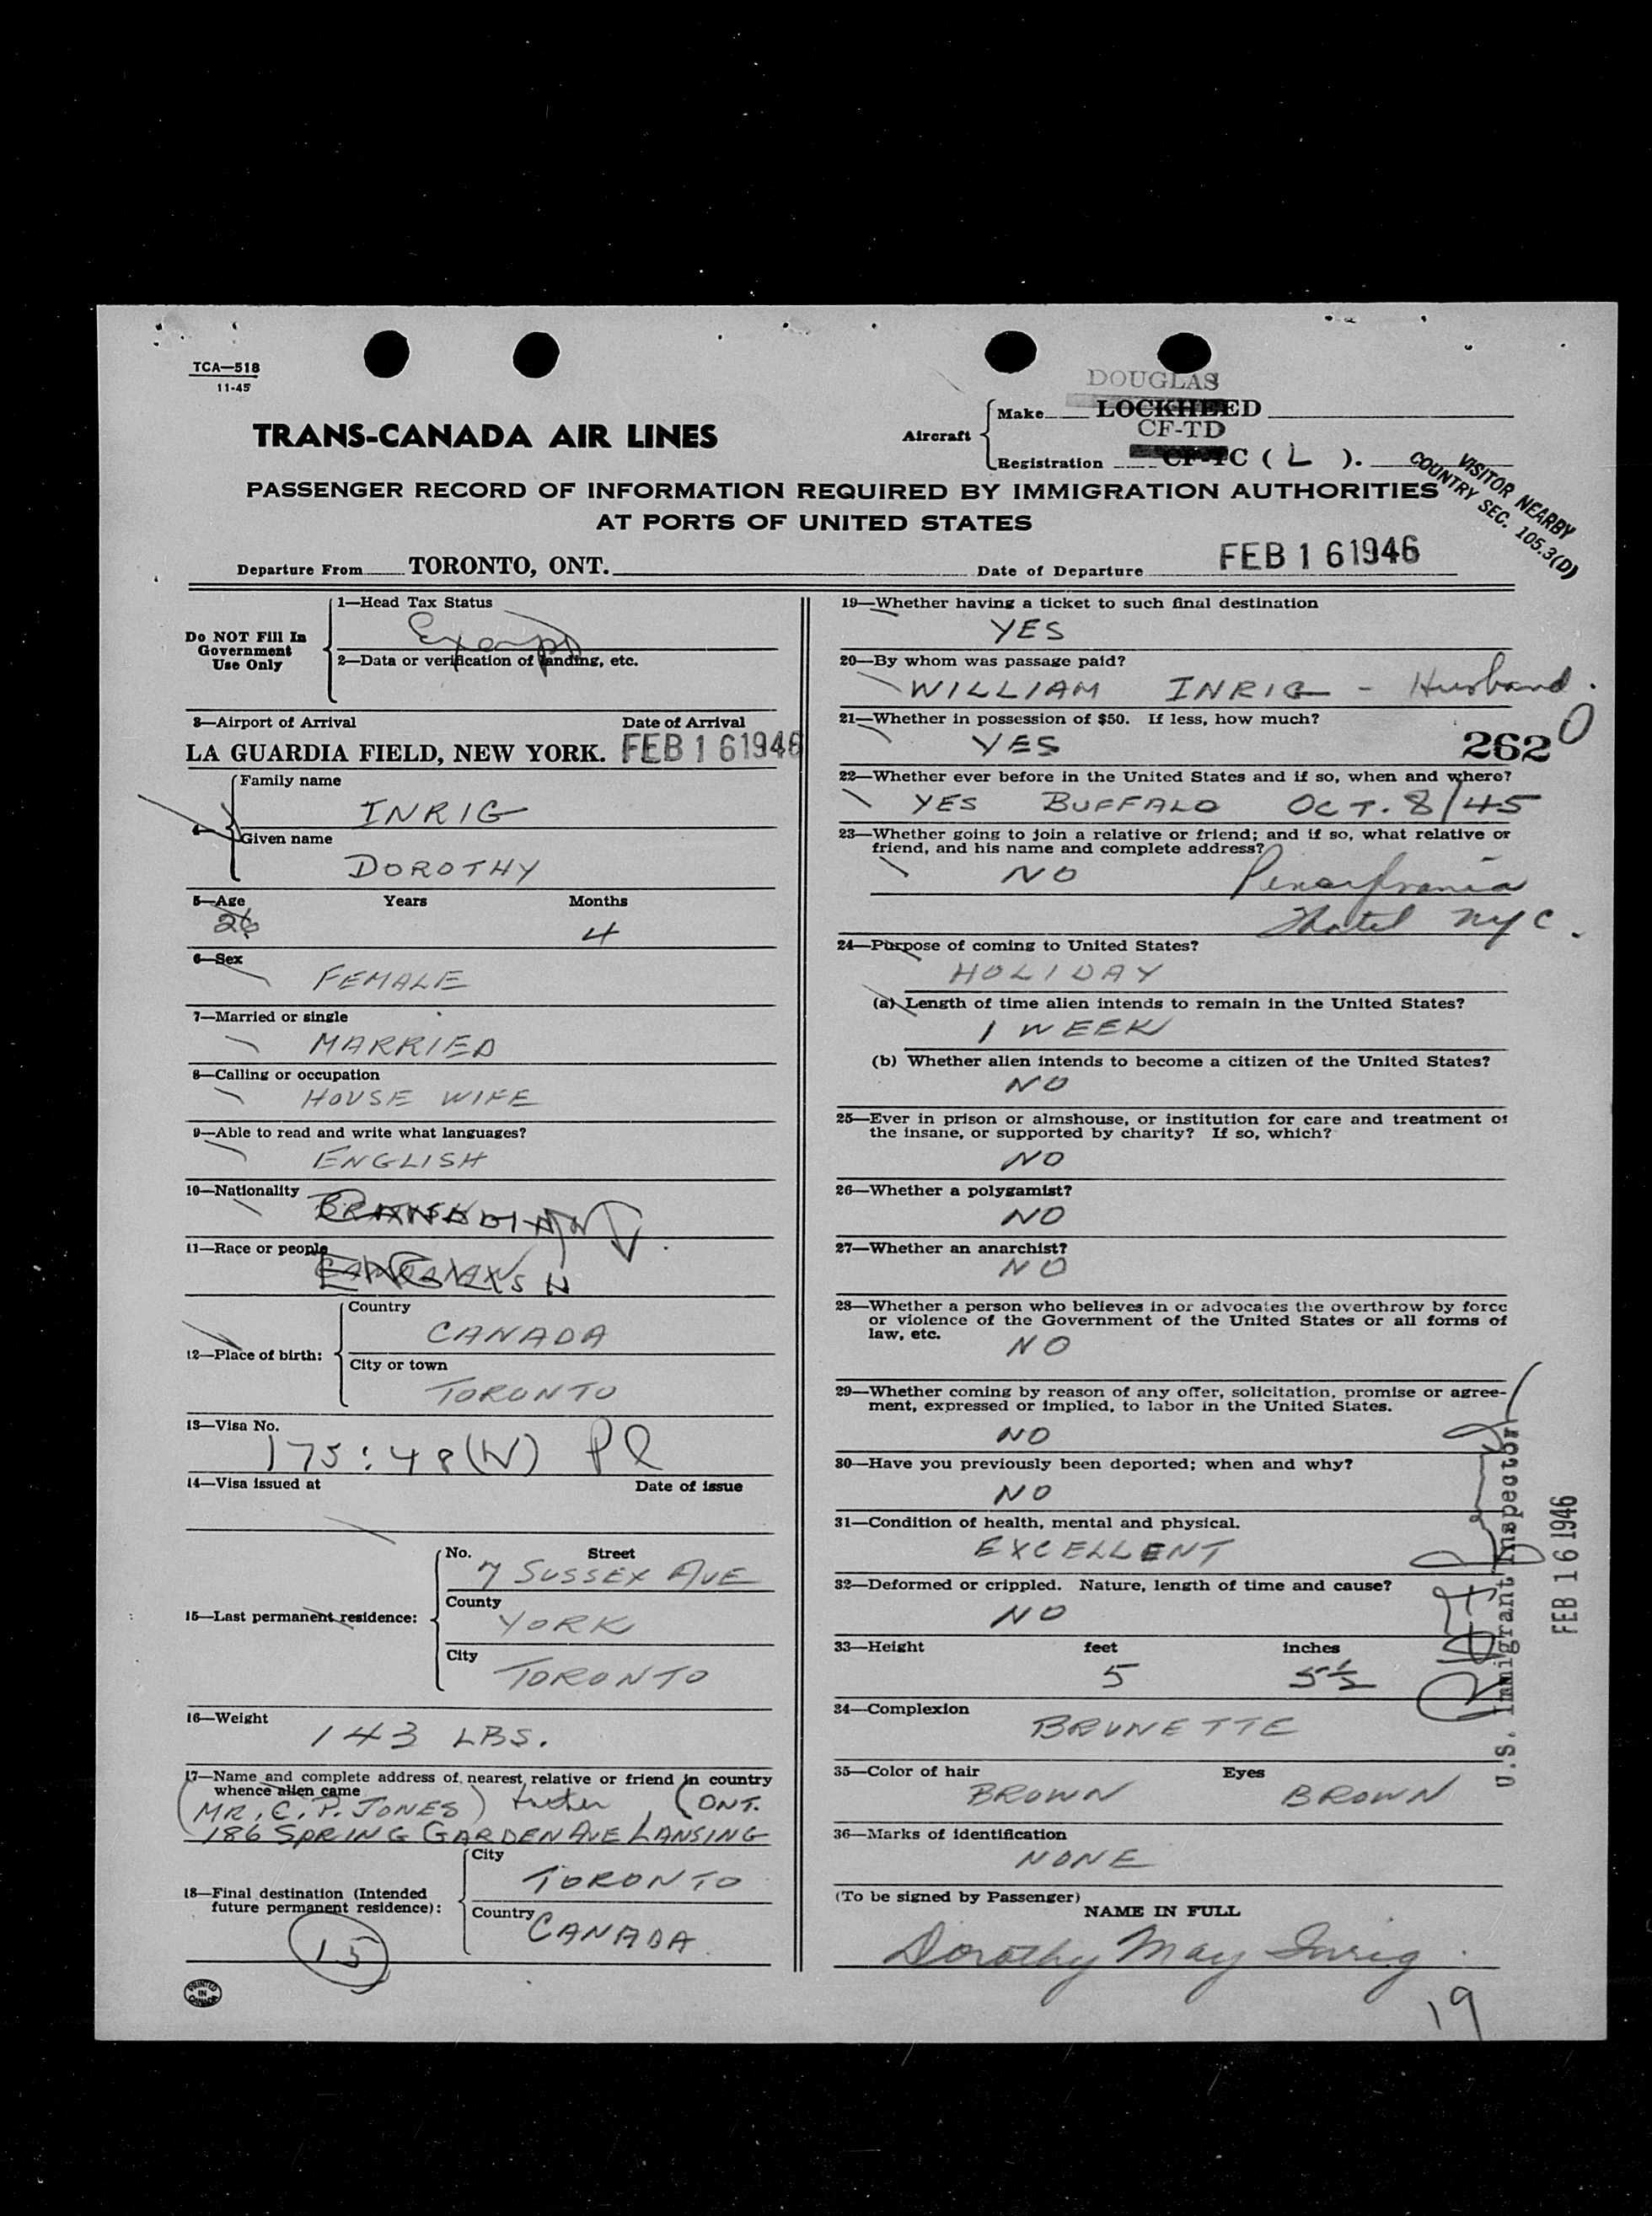 TCA—518
11-45
DOUGLAS
Make LOCKHEED
TRANS-CANADA AIR LINES
Aircraft
CF-TD
Registration CF-TC ( L ).
VISITOR NEARBY
COUNTRY SEC. 105.3(D)
PASSENGER RECORD OF INFORMATION REQUIRED BY IMMIGRATION AUTHORITIES
AT PORTS OF UNITED STATES
Departure From TORONTO, ONT. Date of Departure FEB 16 1946
Do NOT Fill In
Government
Use Only
1—Head Tax Status
Exempt
2—Data or verification of landing, etc.
3—Airport of Arrival Date of Arrival
LA GUARDIA FIELD, NEW YORK. FEB 16 1946
4—
Family name
INRIG
Given name
DOROTHY
5—Age Years Months
26 4
6—Sex
FEMALE
7—Married or single
MARRIED
8—Calling or occupation
HOUSE WIFE
9—Able to read and write what languages?
ENGLISH
10—Nationality
11—Race or people
12—Place of birth:
Country
CANADA
City or town
TORONTO
13—Visa No.
175:48(W) Pl
14—Visa issued at Date of issue
15—Last permanent residence:
No. Street
7 SUSSEX AVE
County
YORK
City
TORONTO
16—Weight
143 LBS.
17—Name and complete address of nearest relative or friend in country
whence alien came
(MR. C. P. JONES) , (ONT.
186 SPRING GARDEN AVE LANSING
18—Final destination (Intended
future permanent residence):
City
TORONTO
Country
CANADA
15
PRINTED
IN
CANADA
19—Whether having a ticket to such final destination
YES
20—By whom was passage paid?
WILLIAM INRIG - Husband.
21—Whether in possession of $50. If less, how much?
YES 262 0
22—Whether ever before in the United States and if so, when and where?
YES BUFFALO OCT. 8/45
23—Whether going to join a relative or friend; and if so, what relative or
friend, and his name and complete address?
NO Pensylvania
Hotel NYC.
24—Purpose of coming to United States?
HOLIDAY
(a) Length of time alien intends to remain in the United States?
1 WEEK
(b) Whether alien intends to become a citizen of the United States?
NO
25—Ever in prison or almshouse, or institution for care and treatment of
the insane, or supported by charity? If so, which?
NO
26—Whether a polygamist?
NO
27—Whether an anarchist?
NO
28—Whether a person who believes in or advocates the overthrow by force
or violence of the Government of the United States or all forms of
law, etc.
NO
29—Whether coming by reason of any offer, solicitation, promise or agree-
ment, expressed or implied, to labor in the United States.
NO
30—Have you previously been deported; when and why?
NO
31—Condition of health, mental and physical.
EXCELLENT
32—Deformed or crippled. Nature, length of time and cause?
NO
33—Height feet inches
5 5½
34—Complexion
BRUNETTE
35—Color of hair Eyes
BROWN BROWN
36—Marks of identification
NONE
(To be signed by Passenger)
NAME IN FULL
Dorothy May Inrig
19
U.S. Immigrant Inspector
FEB 16 1946